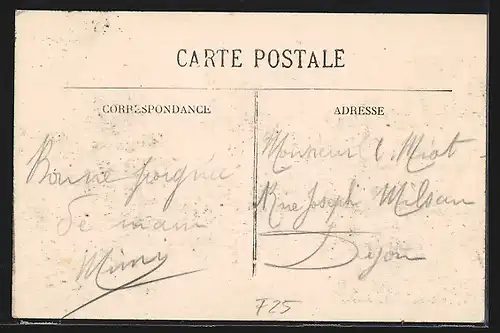 CARTE POSTALE
CORRESPONDANCE
ADRESSE
Bonne poignée
de main
Mimi
Monsieur C. Miot
Rue Joseph Milsan
Dijon
F25